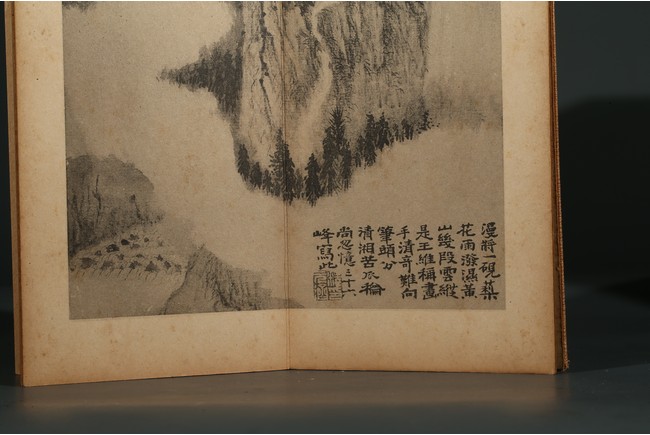 漫將一硯蔾
花雨潑濕黃
山幾段雲縱
是王維稱畫
手清奇難向
筆頭分
清湘苦瓜和
尚忽憶三十六
峰寫此